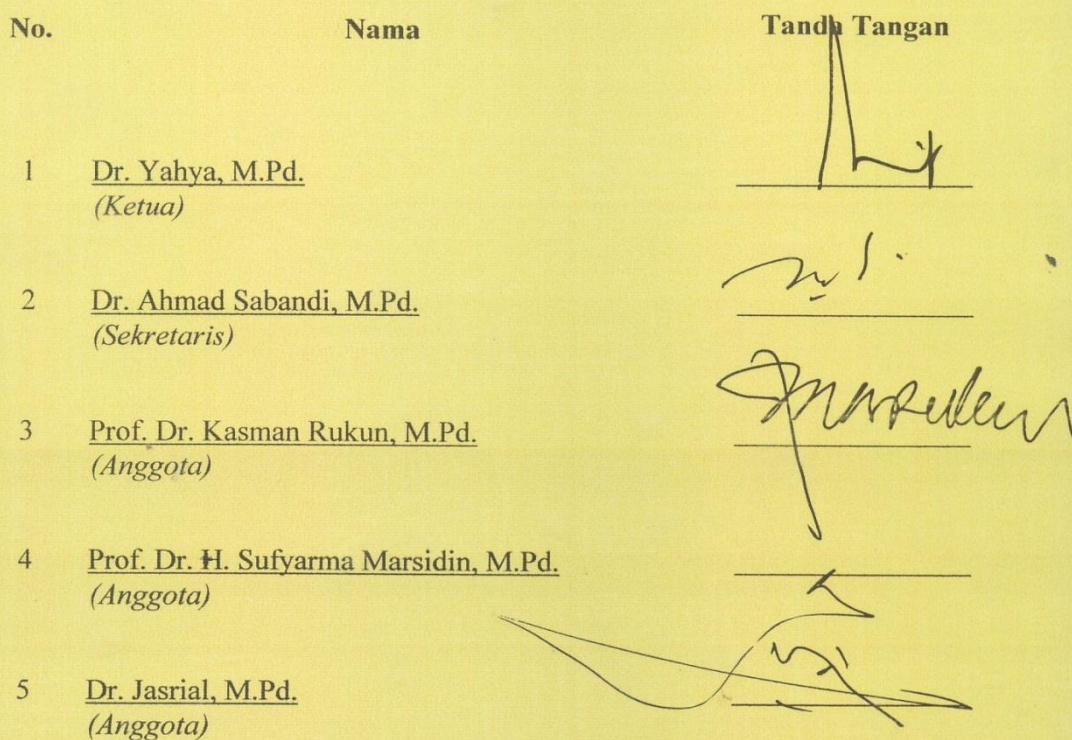 No. Nama Tanda Tangan
1 Dr. Yahya, M.Pd.
(Ketua)
2 Dr. Ahmad Sabandi, M.Pd.
(Sekretaris)
3 Prof. Dr. Kasman Rukun, M.Pd.
(Anggota)
4 Prof. Dr. H. Sufyarma Marsidin, M.Pd.
(Anggota)
5 Dr. Jasrial, M.Pd.
(Anggota)